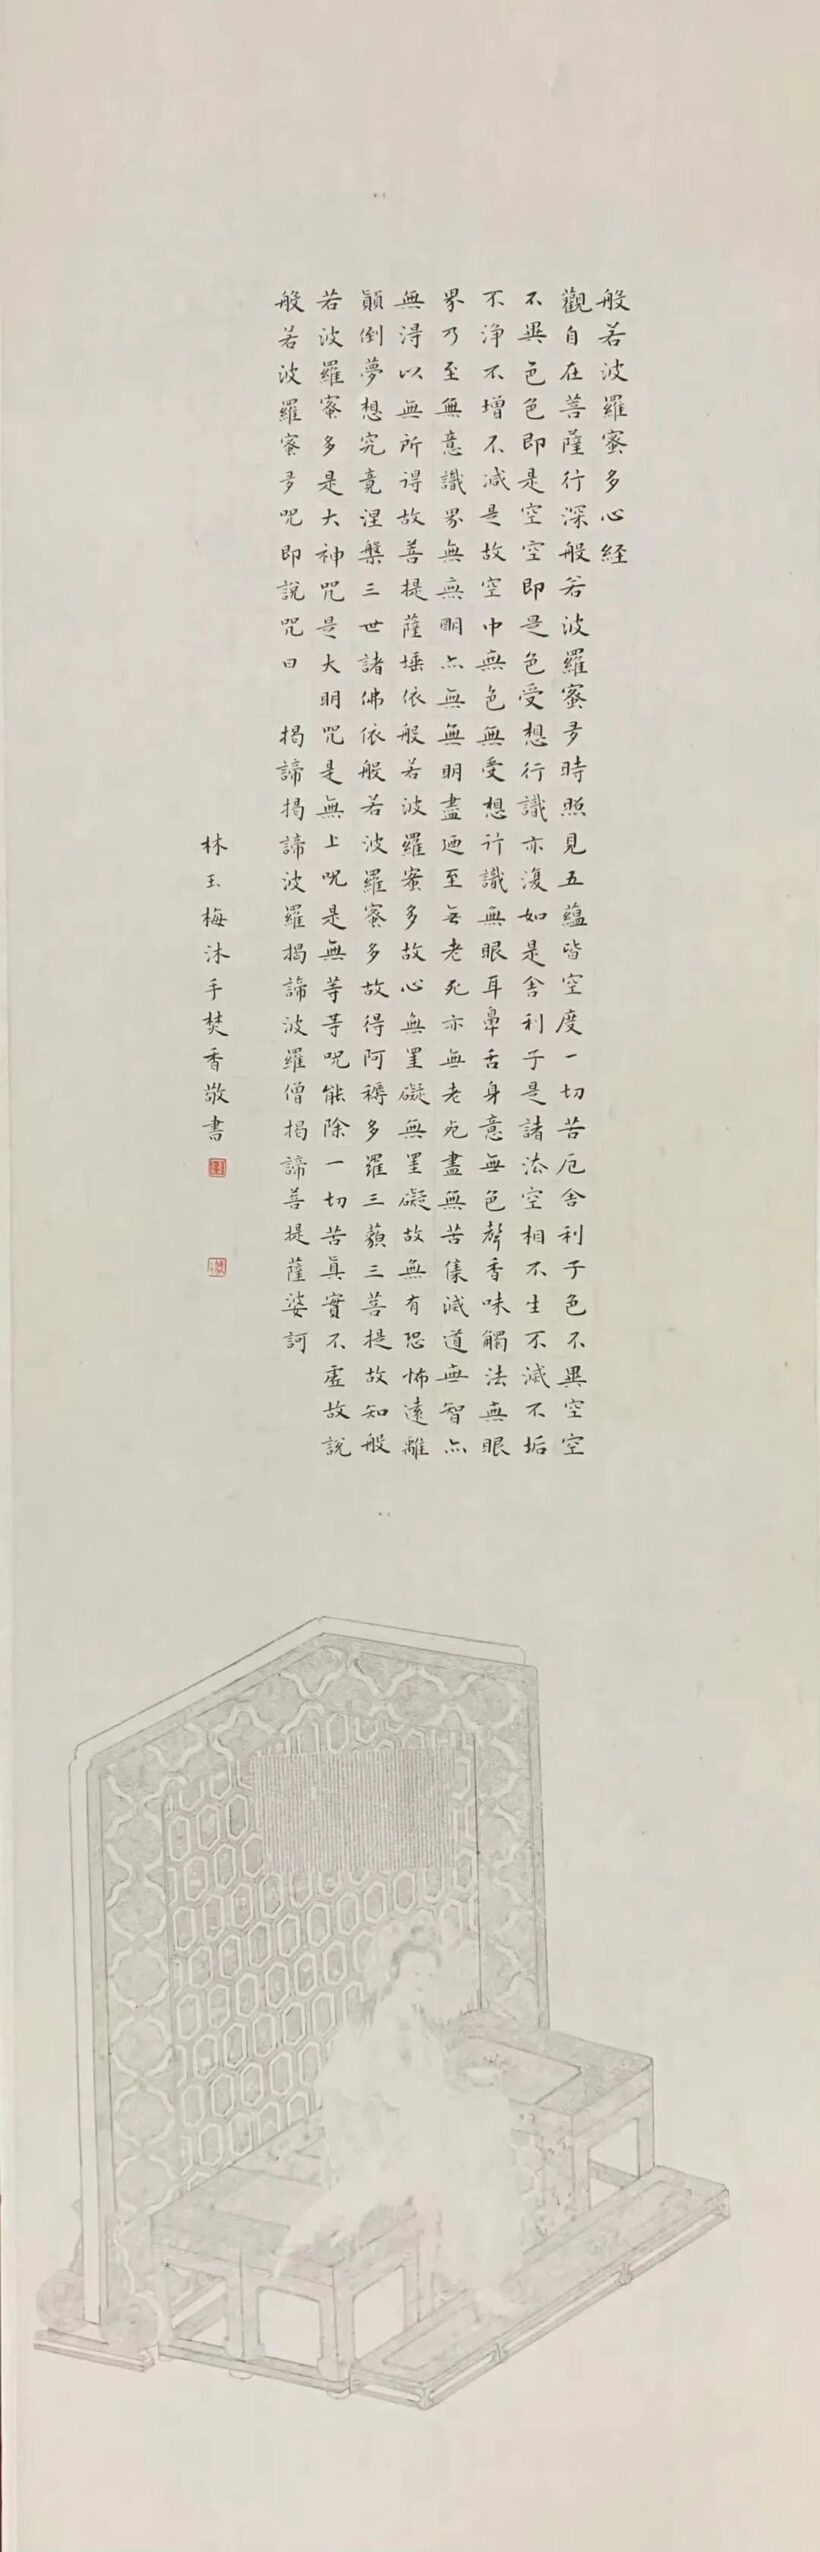 般若波羅蜜多心経
觀自在菩薩行深般若波羅蜜多時照見五蘊皆空度一切苦厄舍利子色不異空空
不異色色即是空空即是色受想行識亦復如是舍利子是諸法空相不生不滅不垢
不淨不增不減是故空中無色無受想行識無眼耳鼻舌身意無色聲香味觸法無眼
界乃至無意識界無無明亦無無明盡廼至無老死亦無老死盡無苦集滅道無智亦
無得以無所得故菩提薩埵依般若波羅蜜多故心無罣礙無罣礙故無有恐怖遠離
顛倒夢想究竟涅槃三世諸佛依般若波羅蜜多故得阿耨多羅三藐三菩提故知般
若波羅蜜多是大神咒是大明咒是無上咒是無等等咒能除一切苦真實不虛故說
般若波羅蜜多咒即說咒曰 揭諦揭諦波羅揭諦波羅僧揭諦菩提薩婆訶
林玉梅沐手焚香敬書